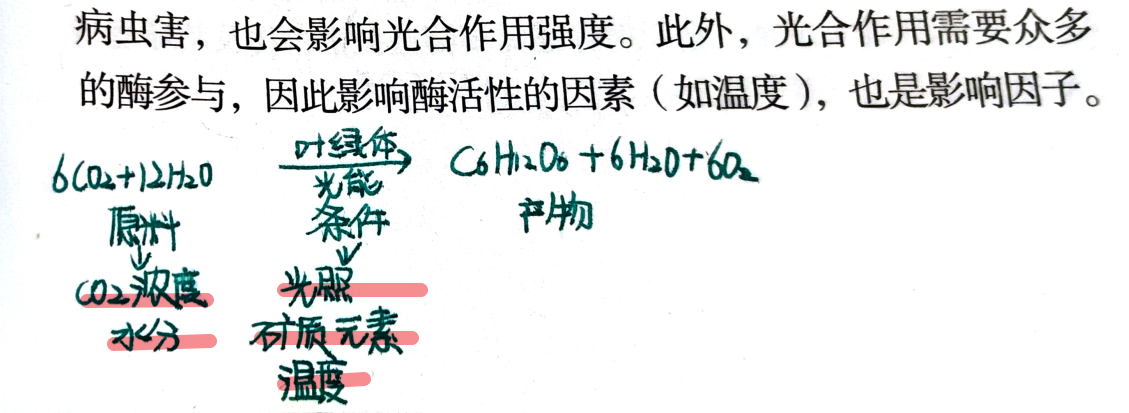 病虫害，也会影响光合作用强度。此外，光合作用需要众多
的酶参与，因此影响酶活性的因素（如温度），也是影响因子。
6CO2+12H2O 叶绿体 光能 → C6H12O6+6H2O+6O2
原料 条件 产物
↓ ↓
CO2浓度 光照
水分 矿质元素
温度